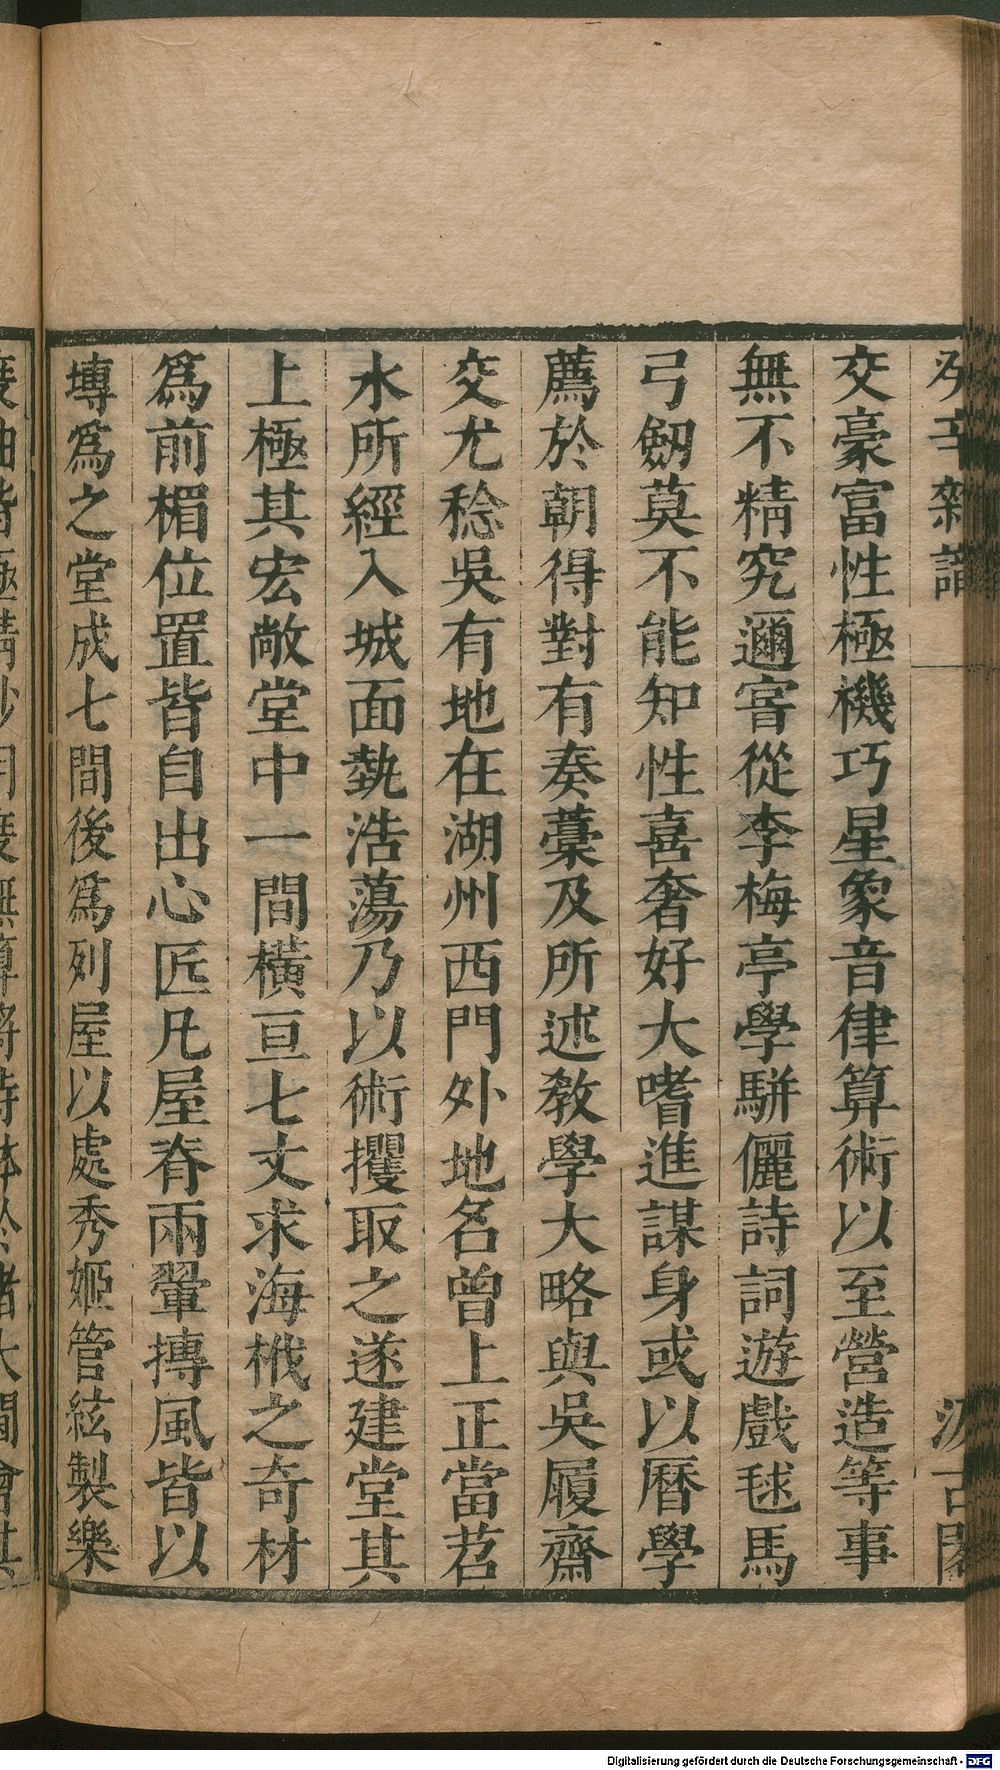 癸辛雜識
汲古閣
交豪富性極機巧星象音律算術以至營造等事
無不精究邇嘗從李梅亭學駢儷詩詞遊戲毬馬
弓劒莫不能知性喜奢好大嗜進謀身或以曆學
薦於朝得對有奏藁及所述數學大略與吳履齋
交尤稔吳有地在湖州西門外地名曾上正當苕
水所經入城面埶浩蕩乃以術攫取之遂建堂其
上極其宏敞堂中一間橫亘七丈求海栰之奇材
爲前楣位置皆自出心匠凡屋脊兩翬摶風皆以
塼爲之堂成七間後爲列屋以處秀姬管絃製樂
Digitalisierung gefördert durch die Deutsche Forschungsgemeinschaft - DFG